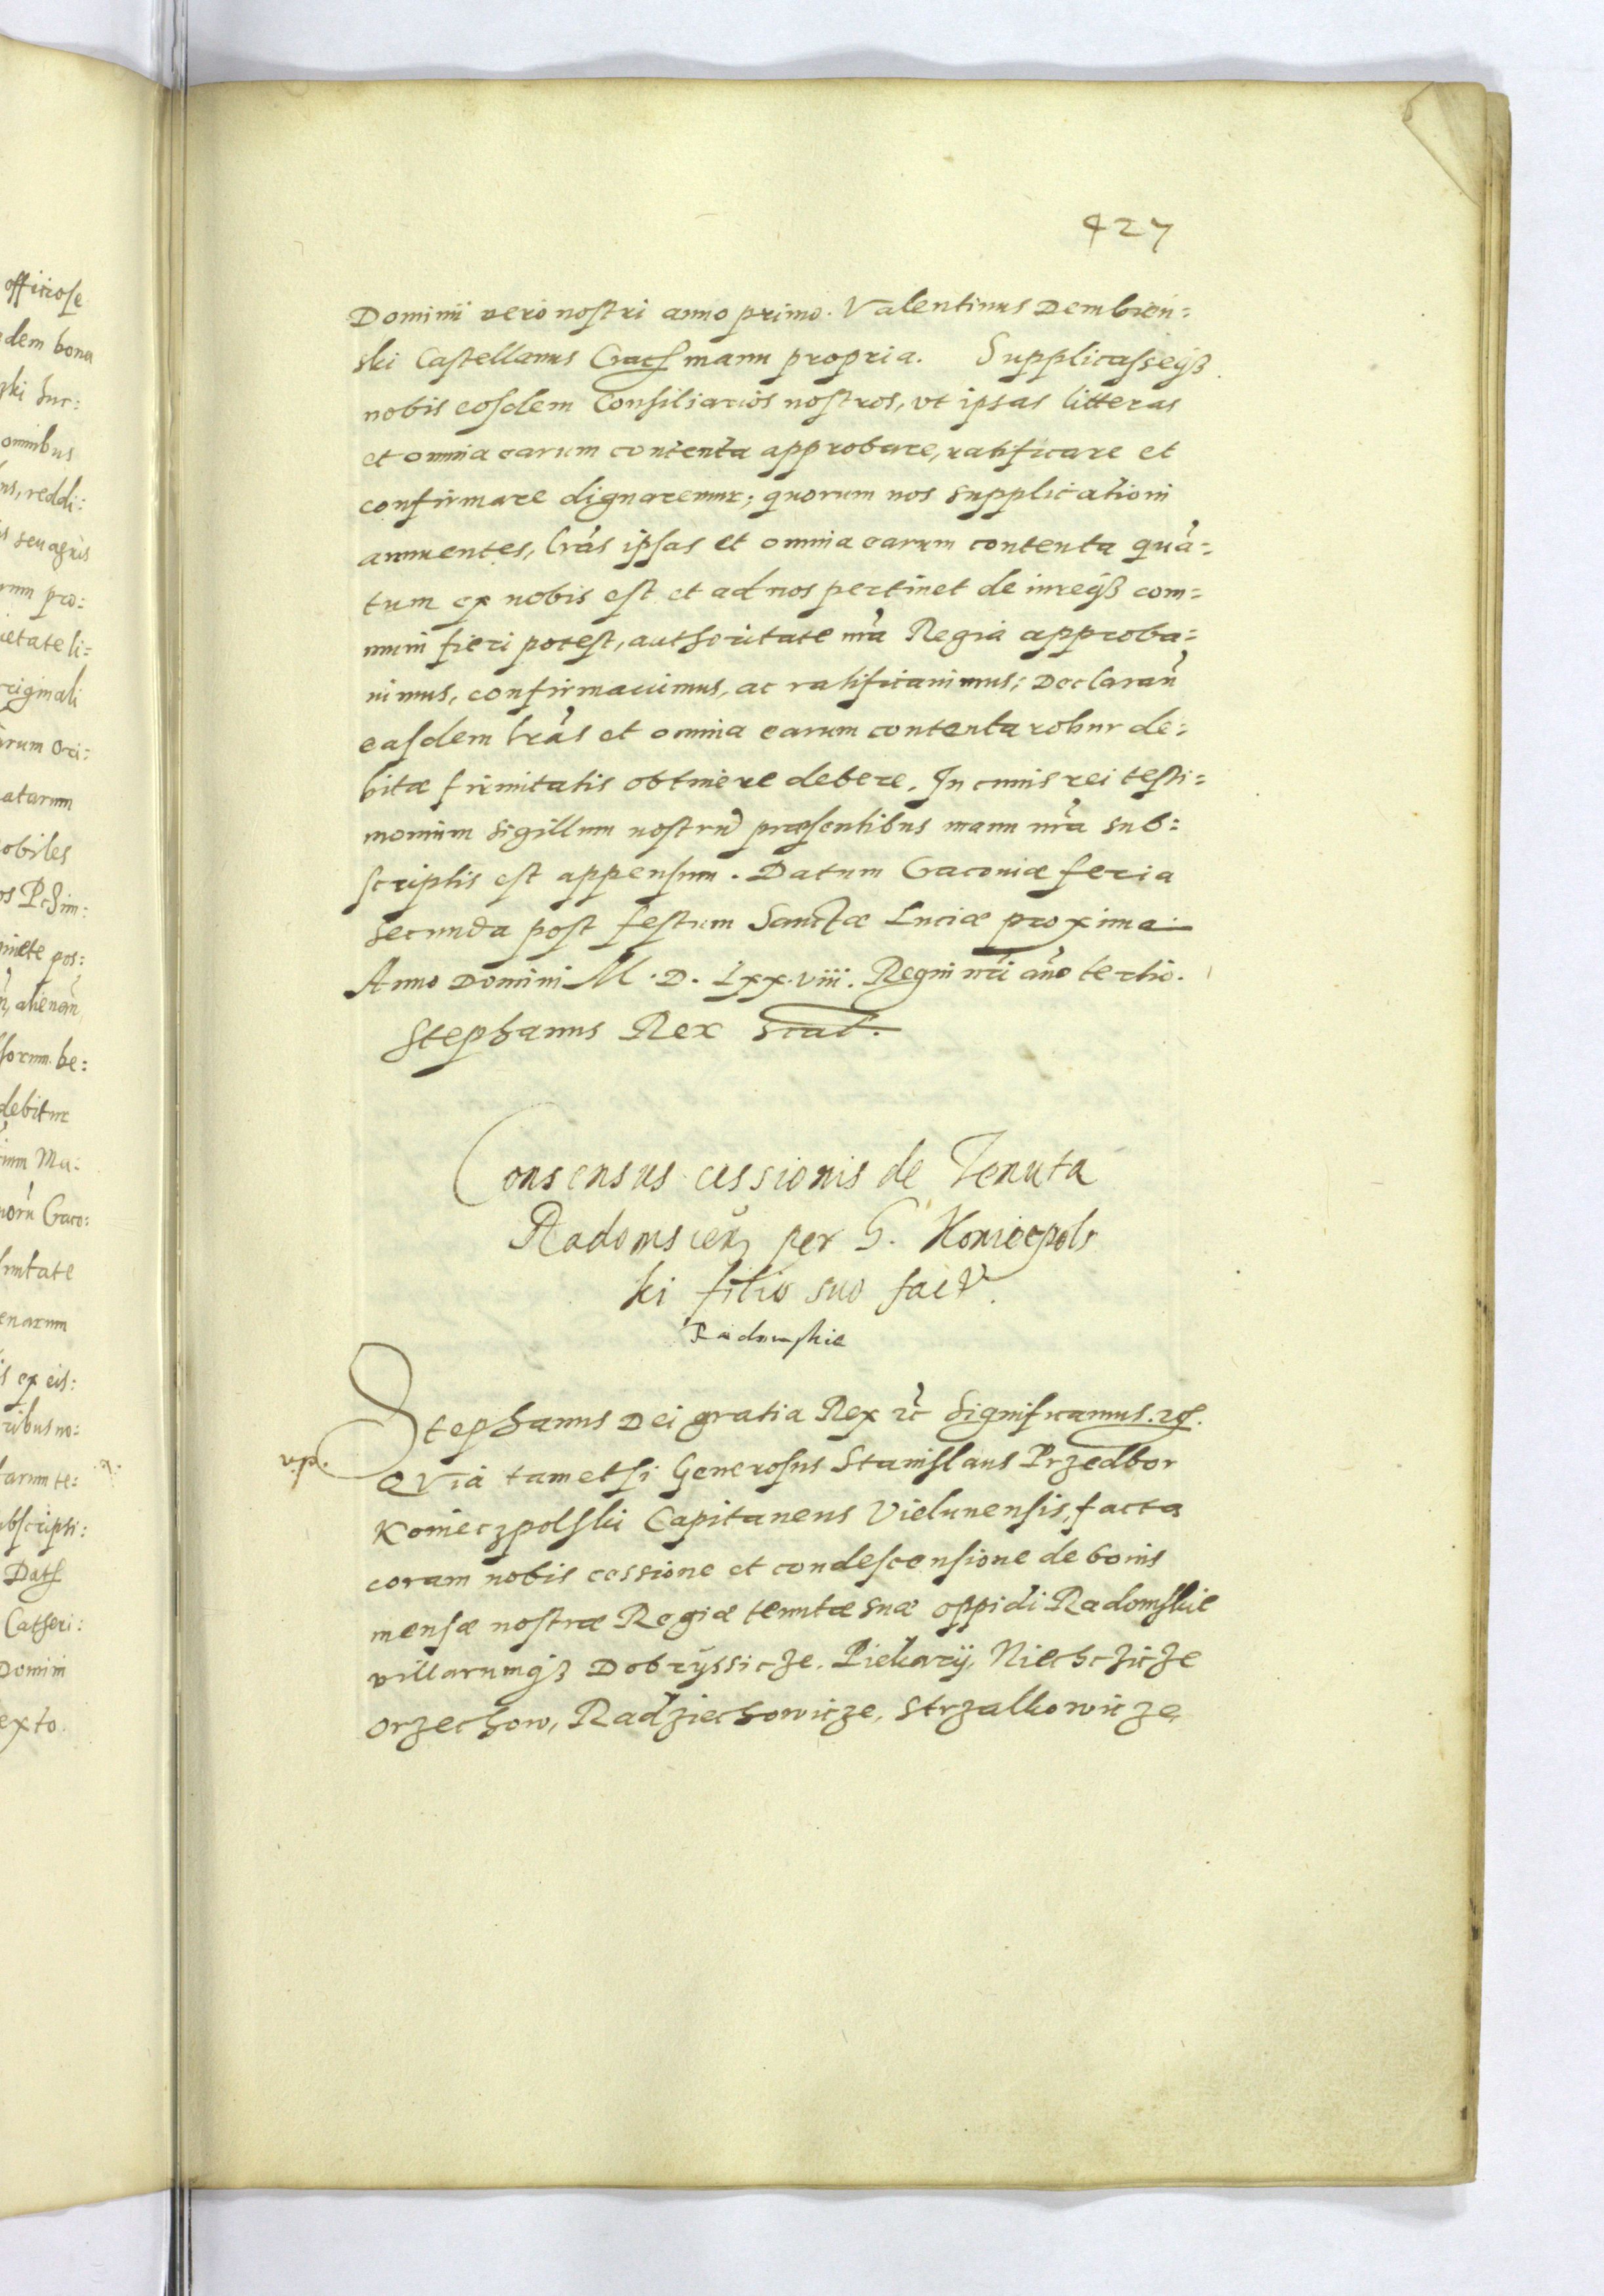 427
Dominii vero nostri anno primo. Valentinus Dembien:
ski Castellanus Crac manu propria. Supplicasseq́ꝫ
nobis eosdem Consiliarios nostros, vt ipsas litteras
et omnia earum contenta approbare, ratificare et
confirmare dignaremur; quorum nos supplicationi
annuentes, lrãs ipsas et omnia earum contenta quã:
tum ex nobis est et ad nos pertinet de iureq́ꝫ com:
muni fieri potest, authoritate nrã Regia approba:
uimus, confirmauimus, ac ratificauimus; Declarañ
easdem lrãs et omnia earum contenta robur de:
bitæ firmitatis obtinere debere. In cuius rei testi:
monium sigillum nostrũ præsentibus manu nrã sub:
scriptis est appensum. Datum Cracouiæ feria
secunda post festum Sanctæ Luciæ proxima
Anno Domini M. D. Lxx.viii. Regni nrĩ año tertio.
Stephanus Rex scat.
Consensus cessionis de Tenuta
Radomscen per G. Koniecpols
ki filio suo fact.
Radomskie
Stephanus Dei gratia Rex ꝛc̃ Significamus. ꝛc.
v.p.
QVia tametsi Generosus Stanislaus Przedbor
Konieczpolski Capitaneus Vielunensis, facta
coram nobis cessione et condescensione de bonis
mensæ nostræ Regiæ tenutæ suæ oppidi Radomskie
villarumq́ꝫ Dobryssicze, Piekarÿ, Niechczicze
Orzechow, Radziechowicze, Strzalkowicze,
officiose
dem bona
ski suc:
omnibus
ns, reddi:
s seu agris
rum pro:
ietate li:
riginali
arum Ori:
atarum
obiles
miete pos:
ñ, alienañ
sorum be:
debitur
Ma:
norũ Craco:
enarum
s ex eis:
ribus no:
arum te:
bscripti:
Dat
Catheri:
Domini
exto.